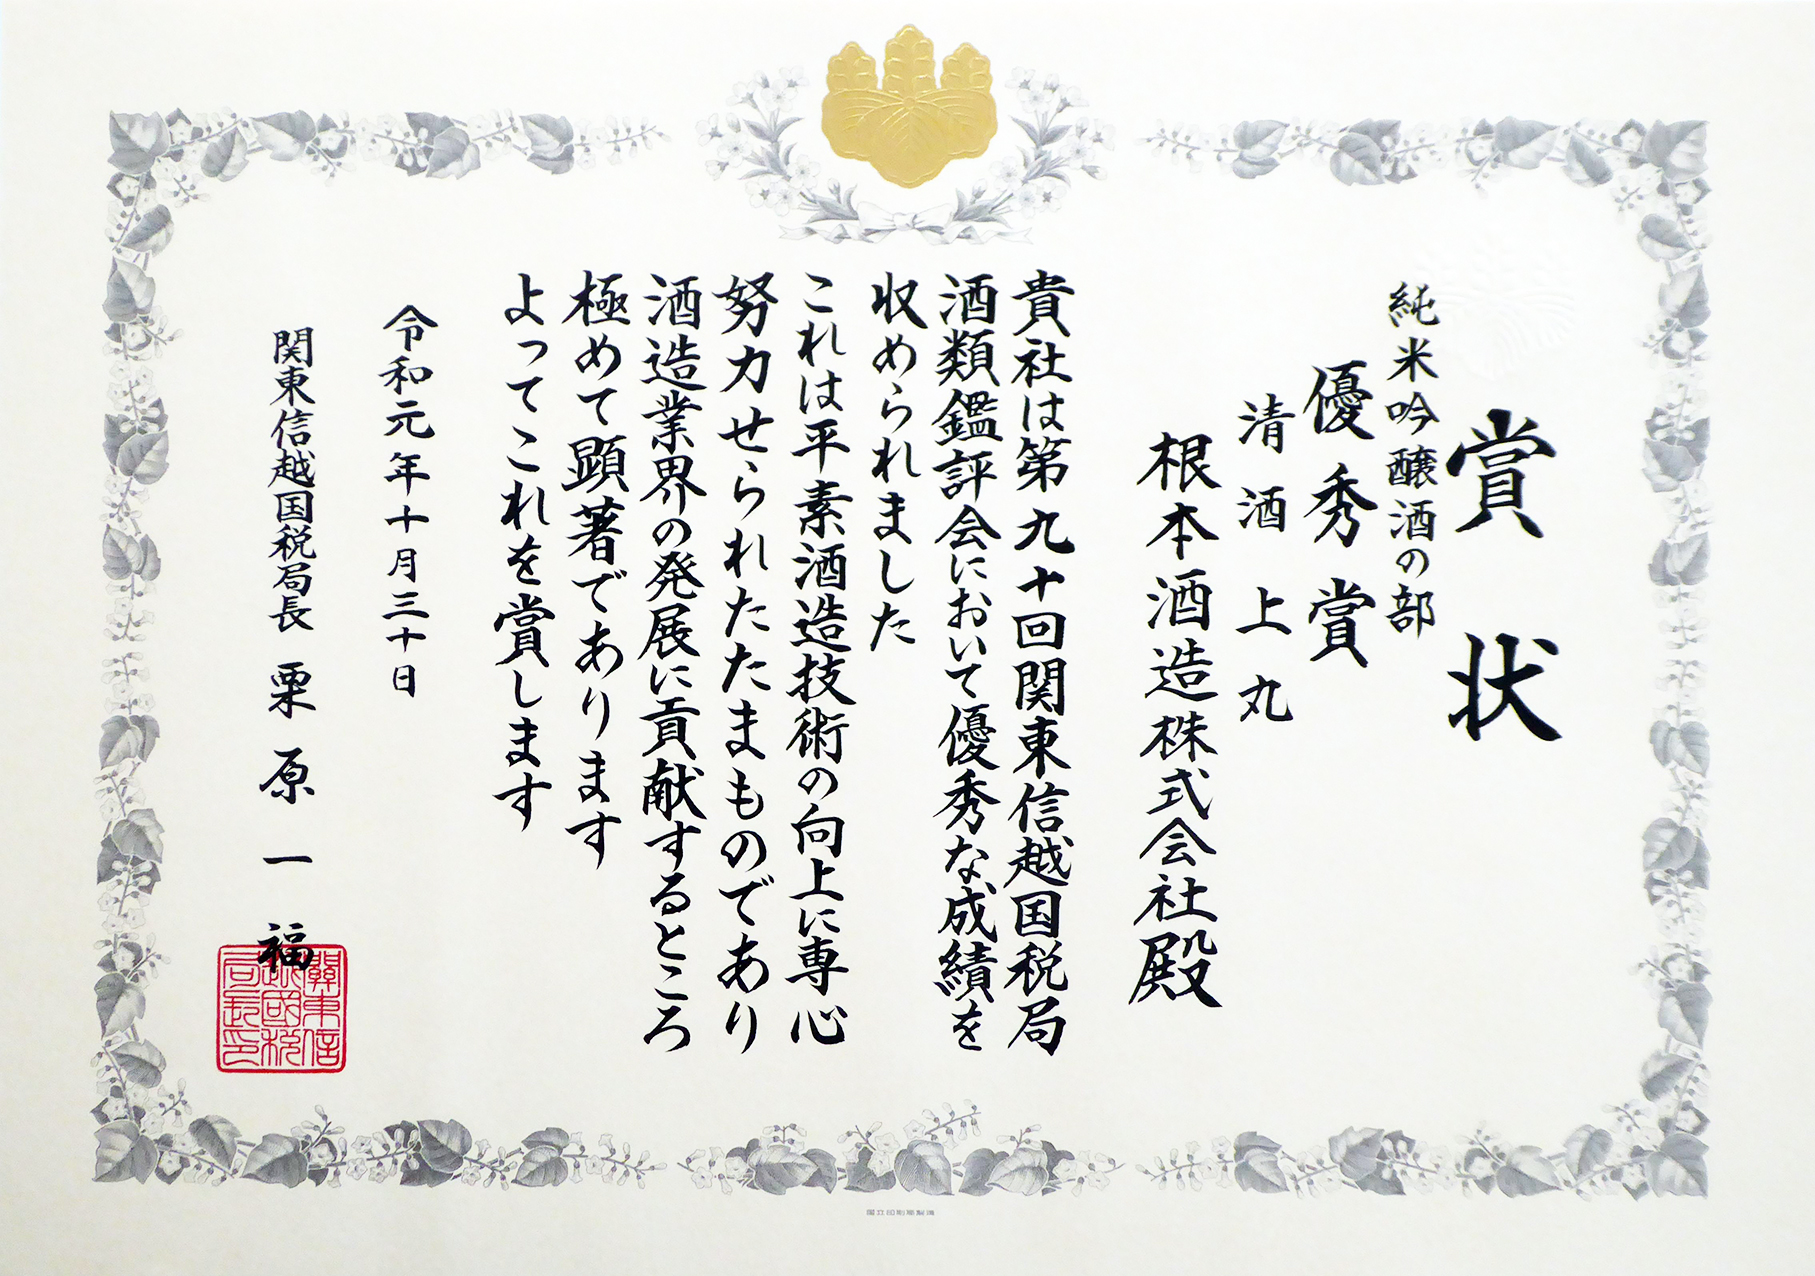 賞状
純米吟醸酒の部
優秀賞
清酒 上丸
根本酒造株式会社殿
貴社は第九十回関東信越国税局
酒類鑑評会において優秀な成績を
収められました
これは平素酒造技術の向上に専心
努力せられたたまものであり
酒造業界の発展に貢献するところ
極めて顕著であります
よってこれを賞します
令和元年十月三十日
関東信越国税局長 栗原一福
関東信越國税局長印
国立印刷局製造